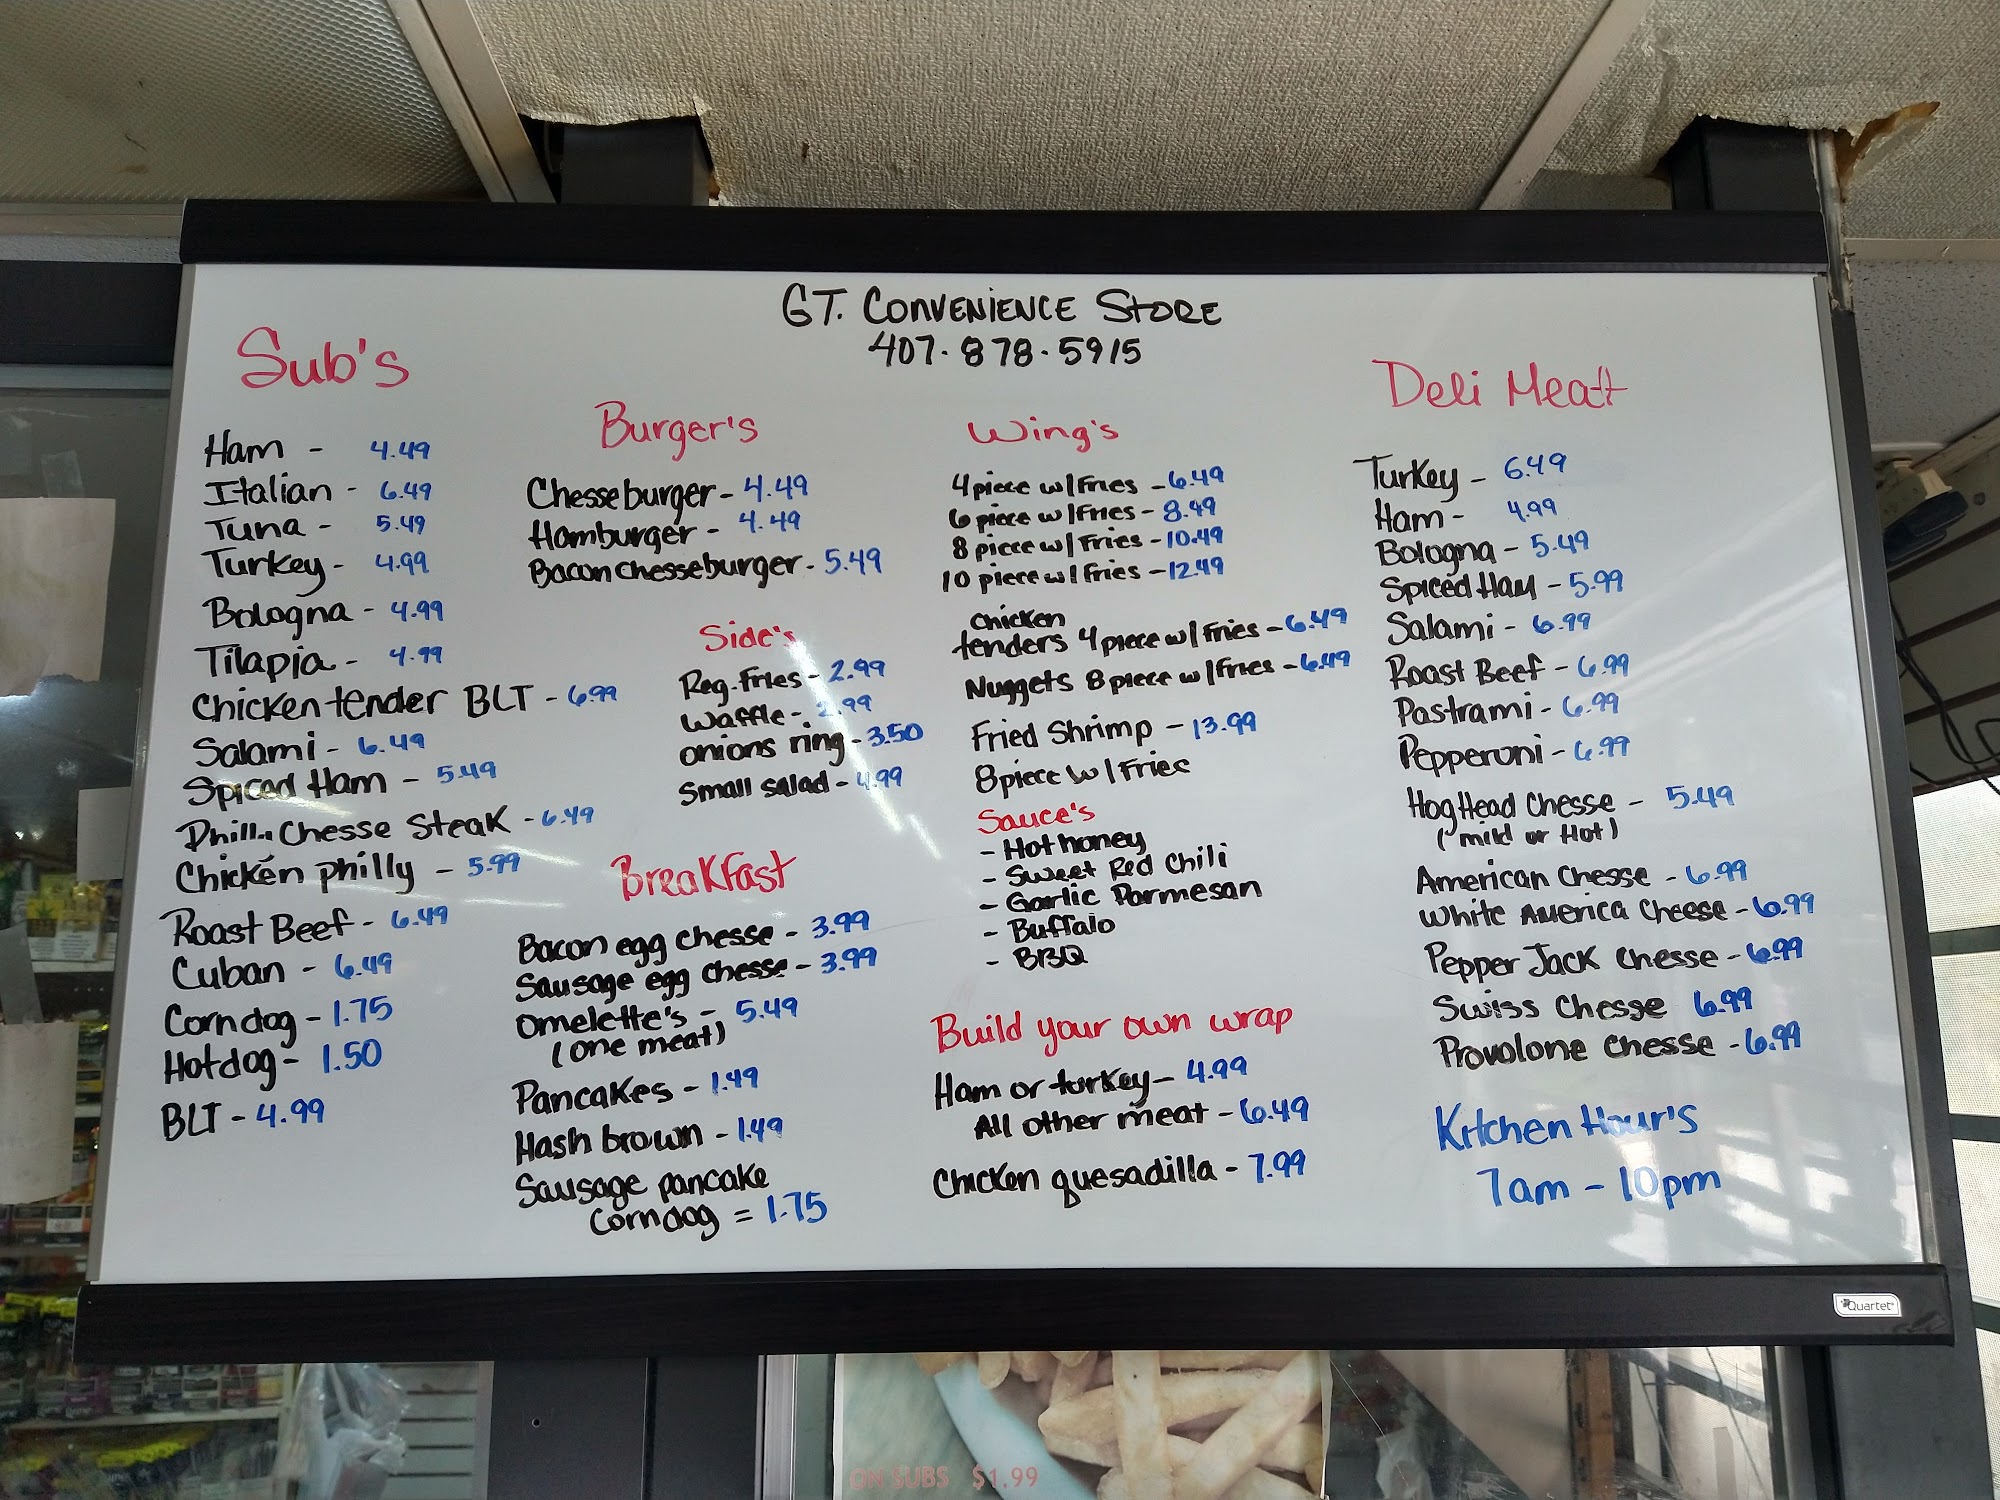 GT. CONVENIENCE STORE
407.878.5915
Sub's
Ham - 4.49
Italian - 6.49
Tuna - 5.49
Turkey - 4.99
Bologna - 4.99
Tilapia - 4.99
Chicken tender BLT - 6.99
Salami - 6.49
Spiced Ham - 5.49
Chesse Steak - 6.49
Chicken philly - 5.99
Roast Beef - 6.49
Cuban - 6.49
Corndog - 1.75
Hotdog - 1.50
BLT - 4.99
Burger's
Chesseburger - 4.49
Hamburger - 4.49
Bacon chesseburger - 5.49
Side's
Reg. Fries - 2.99
Waffle - 2.99
onions ring - 3.50
Small salad - 4.99
Breakfast
Bacon egg chesse - 3.99
Sausage egg chesse - 3.99
Omelette's - 5.49
(one meat)
Pancakes - 1.49
Hash brown - 1.49
Sausage pancake
corndog = 1.75
Wing's
4 piece w/ Fries - 6.49
6 piece w/ Fries - 8.49
8 piece w/ Fries - 10.49
10 piece w/ Fries - 12.49
Chicken
tenders 4 piece w/ Fries - 6.49
Nuggets 8 piece w/ Fries - 6.49
Fried Shrimp - 13.99
8 piece w/ Fries
Sauce's
- Hot honey
- Sweet Red Chili
- Garlic Parmesan
- Buffalo
- BBQ
Build your own wrap
Ham or turkey - 4.99
All other meat - 6.49
Chicken quesadilla - 7.99
Deli Meatt
Turkey - 6.49
Ham - 4.99
Bologna - 5.49
Spiced Ham - 5.99
Salami - 6.99
Roast Beef - 6.99
Pastrami - 6.99
Pepperoni - 6.99
Hog Head Chesse - 5.49
(mild or Hot)
American Chesse - 6.99
White America Cheese - 6.99
Pepper Jack Chesse - 6.99
Swiss Chesse 6.99
Provolone Chesse - 6.99
Kitchen Hour's
7am - 10pm
Quartet
ON SUBS $1.99